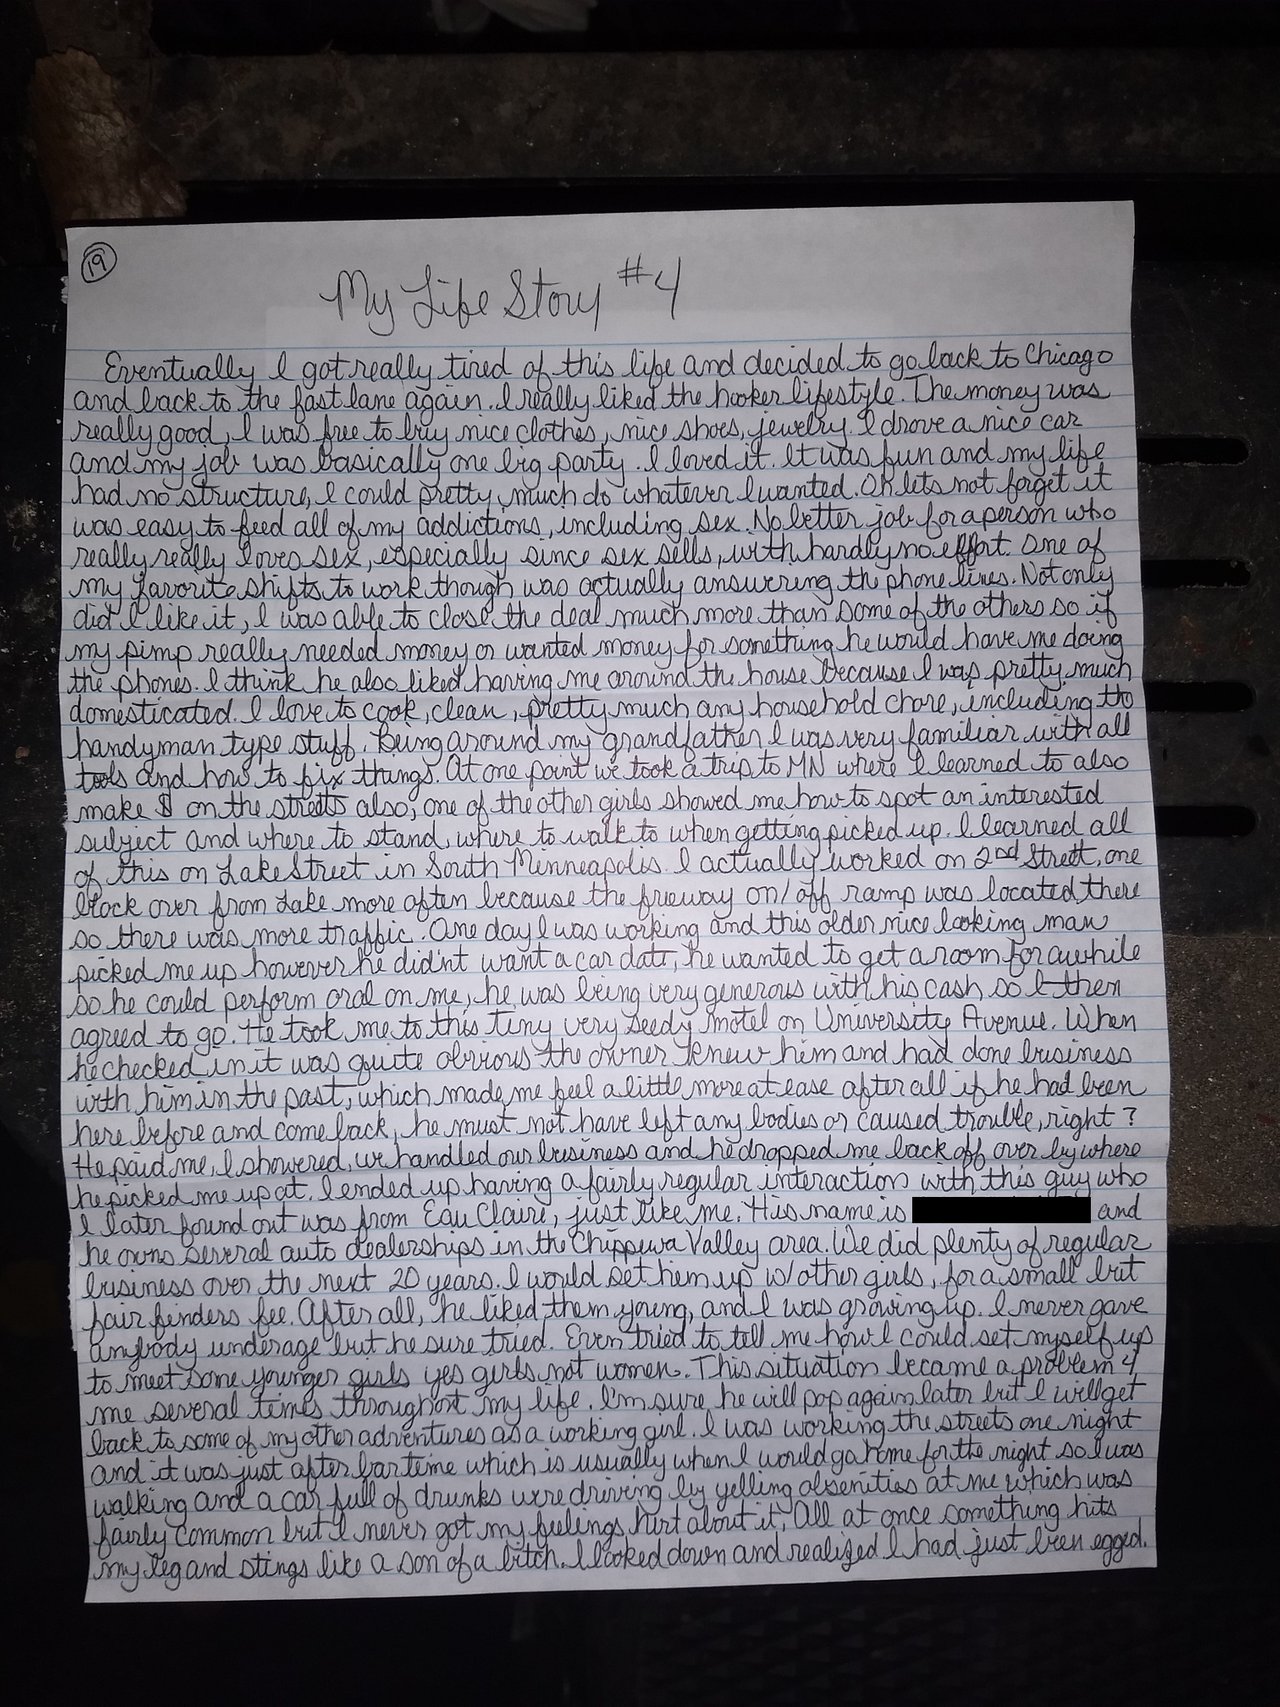 19
My Life Story #4
Eventually I got really tired of this life and decided to go back to Chicago
and back to the fast lane again. I really liked the hooker lifestyle. The money was
really good, I was free to buy nice clothes, nice shoes, jewelry. I drove a nice car
and my job was basically one big party. I loved it. It was fun and my life
had no structure, I could pretty much do whatever I wanted. Oh lets not forget it
was easy to feed all of my addictions, including sex. No better job for a person who
really really loves sex, especially since sex sells, with hardly no effort. One of
my favorite shifts to work though was actually answering the phone lines. Not only
did I like it, I was able to close the deal much more than some of the others so if
my pimp really needed money or wanted money for something he would have me doing
the phones. I think he also liked having me around the house because I was pretty much
domesticated. I love to cook, clean, pretty much any household chore, including the
handyman type stuff. Being around my grandfather I was very familiar with all
tools and how to fix things. At one point we took a trip to MN where I learned to also
make $ on the streets also, one of the other girls showed me how to spot an interested
subject and where to stand, where to walk to when getting picked up. I learned all
of this on Lake Street in South Minneapolis. I actually worked on 2nd Street, one
block over from Lake more often because the frieway on/off ramp was located there
so there was more traffic. One day I was working and this older nice looking man
picked me up however he did'nt want a car date, he wanted to get a room for awhile
so he could perform oral on me, he was being very generous with his cash so I then
agreed to go. He took me to this tiny very seedy motel on University Avenue. When
he checked in it was quite obvious the owner knew him and had done business
with him in the past, which made me feel a little more at ease after all if he had been
here before and come back, he must not have left any bodies or caused trouble, right?
He paid me, I showered, we handled our business and he dropped me back off over by where
he picked me up at. I ended up having a fairly regular interaction with this guy who
I later found out was from Eau Claire, just like me. His name is and
he owns several auto dealerships in the Chippewa Valley area. We did plenty of regular
business over the next 20 years. I would set him up w/other girls, for a small but
fair finders fee. After all, he liked them young, and I was growing up. I never gave
anybody underage but he sure tried. Even tried to tell me how I could set myself up
to meet some younger girls yes girls not women. This situation became a problem 4
me several times throughout my life. I'm sure he will pop again later but I will get
back to some of my other adventures as a working girl. I was working the streets one night
and it was just after bartime which is usually when I would go home for the night so I was
walking and a car full of drunks were driving by yelling obsenities at me which was
fairly common but I never got my feelings hurt about it. All at once something hits
my leg and stings like a son of a bitch. I looked down and realized I had just been egged.